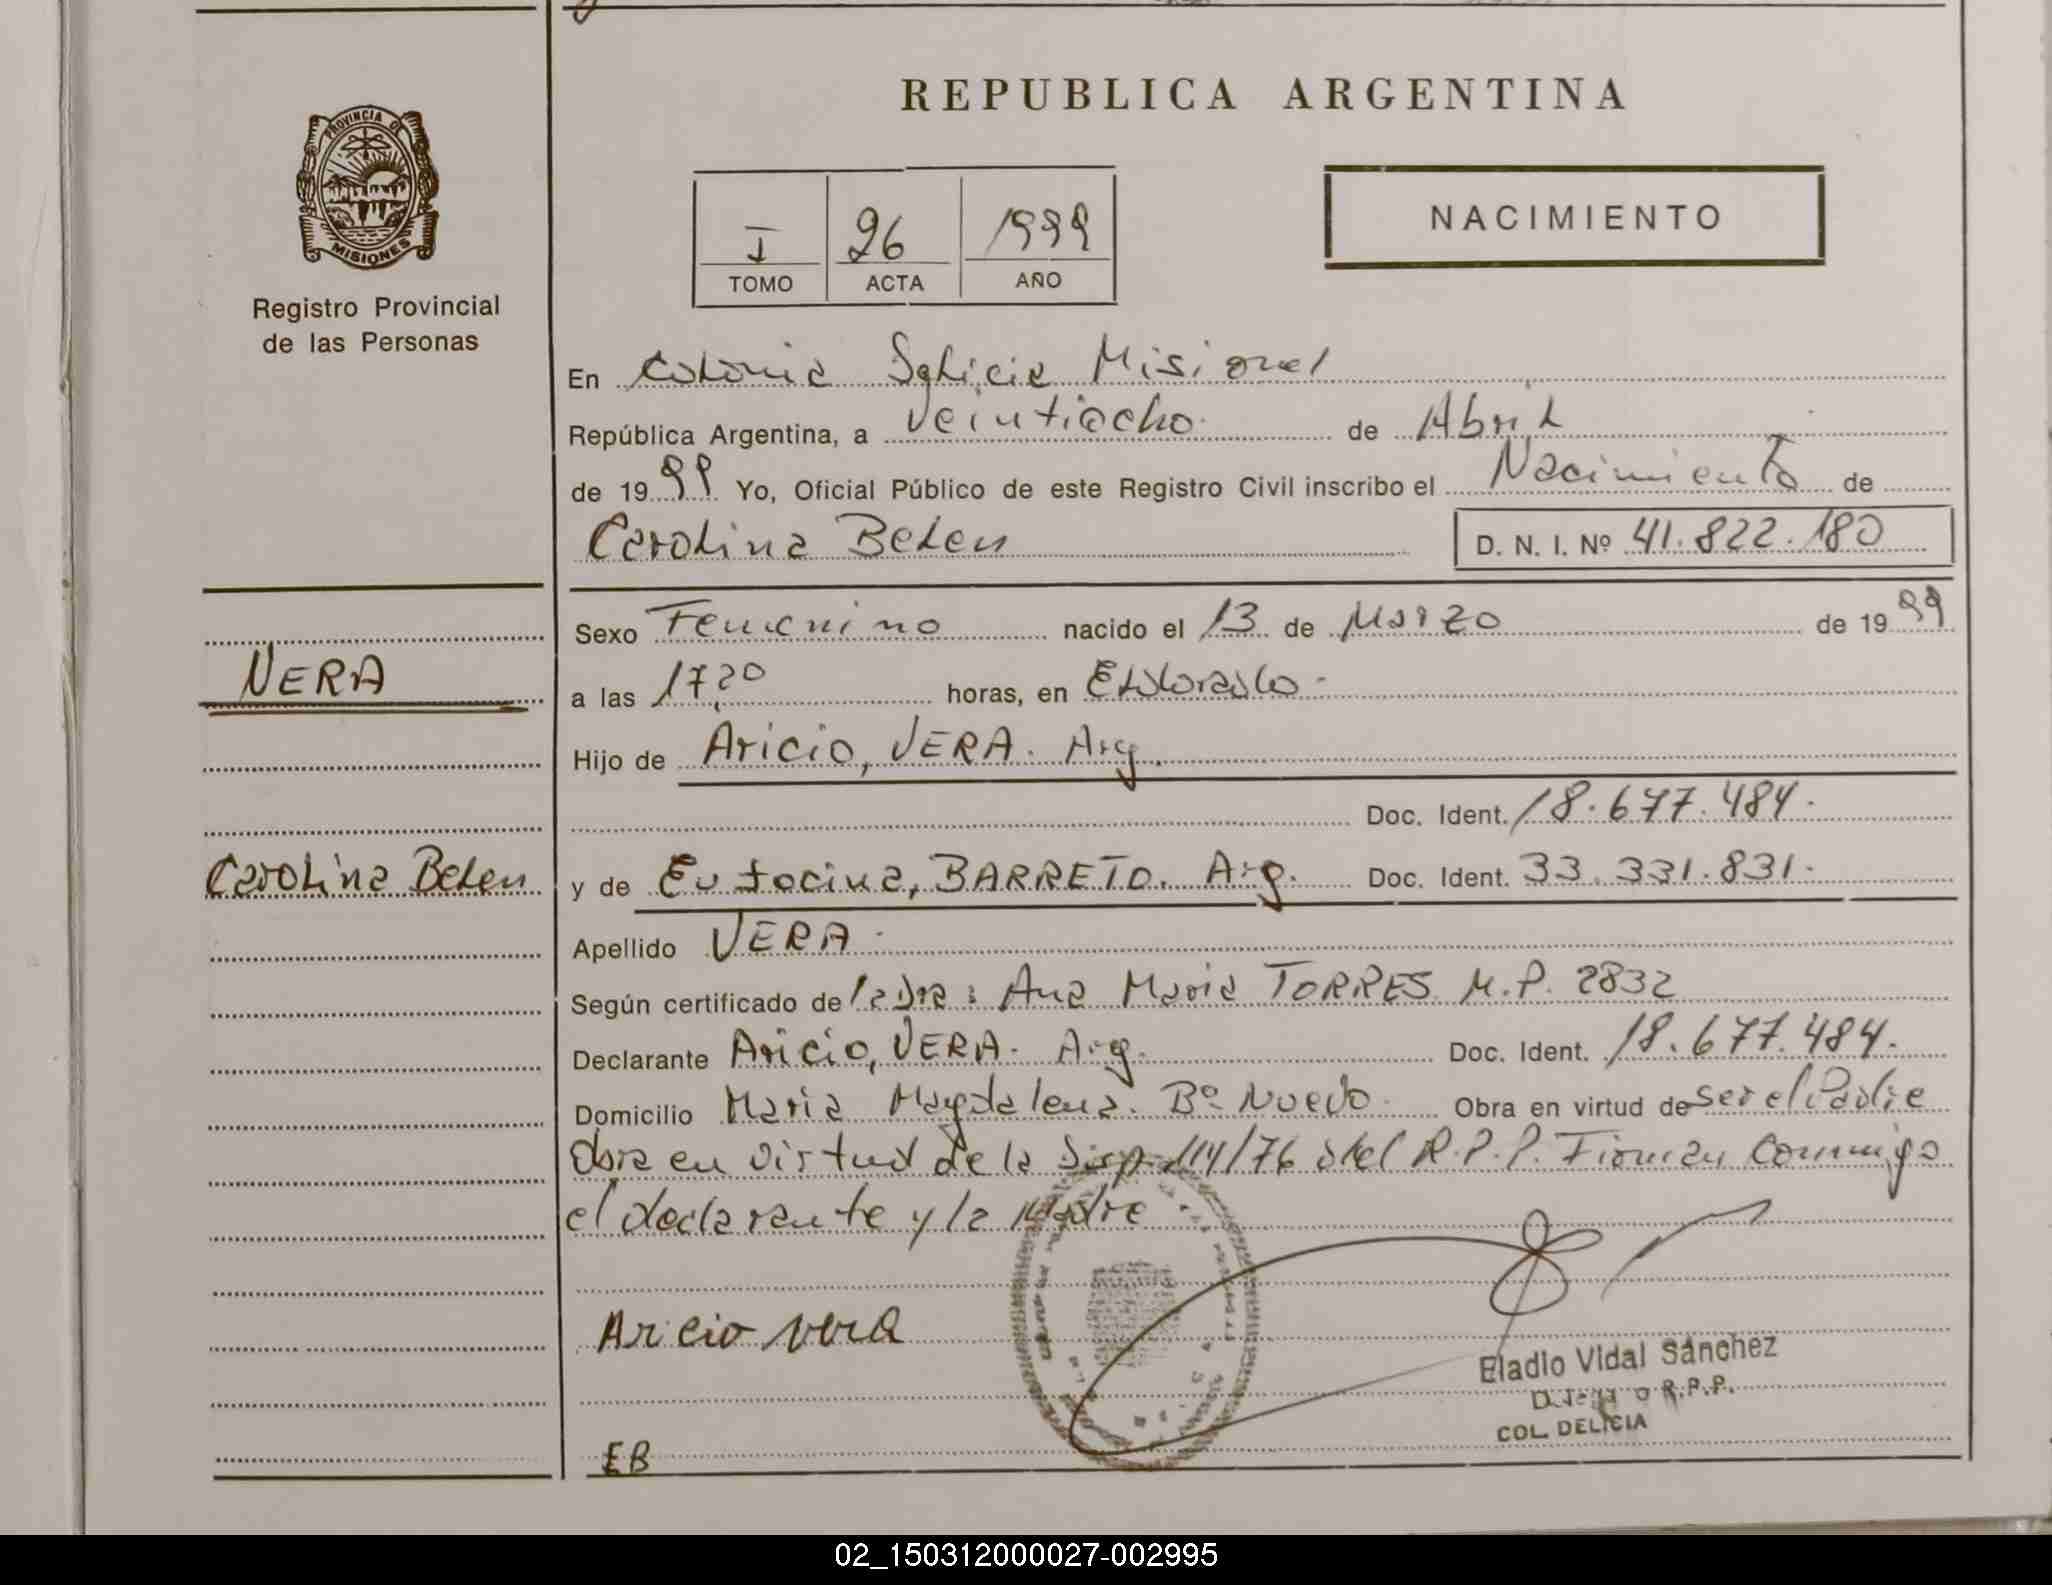 REPUBLICA ARGENTINA
PROVINCIA DE
MISIONES
Registro Provincial
de las Personas
I 26 1999
TOMO ACTA AÑO
NACIMIENTO
En Colonia Delicia Misiones
República Argentina, a veintiocho de Abril
de 1999 Yo, Oficial Público de este Registro Civil inscribo el Nacimiento de
Carolina Belen D. N. I. Nº 41.822.180
Sexo Femenino nacido el 13 de Marzo de 1999
VERA
a las 17,20 horas, en Eldorado
Hijo de Aricio, VERA. Arg.
Doc. Ident. 18.677.484.
Carolina Belen
y de Eufocina, BARRETO. Arg. Doc. Ident. 33.331.831.
Apellido VERA
Según certificado de la Dra: Ana Maria TORRES M.P. 2832
Declarante Aricio, VERA. Arg. Doc. Ident. 18.677.484.
Domicilio Maria Magdalena. Bº Nuevo. Obra en virtud de ser el Padre
Obra en virtud de la Disp 114/76 del R.P.P. Firman conmigo
el declarante y la Madre
Aricio vera
Eladio Vidal Sánchez
R.P.P.
COL. DELICIA
EB
02_150312000027-002995